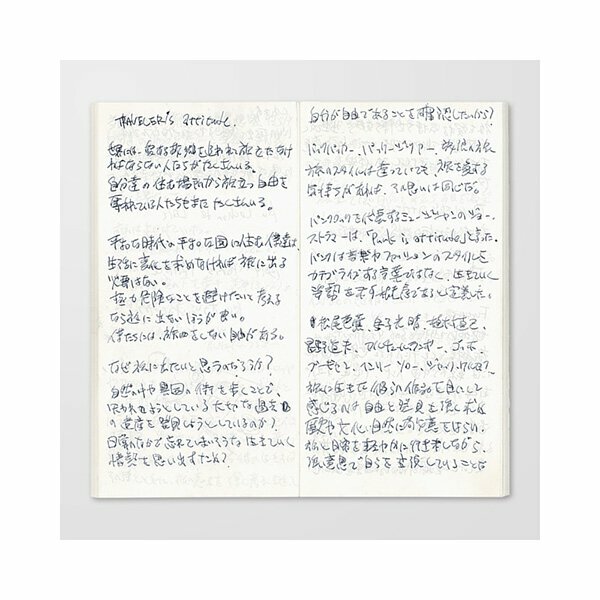 TRAVELER'S attitude.
世界には、愛する故郷を追われ旅をしなけ
ればならない人たちがたくさんいる。
自分達の住む場所から旅立つ自由を
奪われている人たちもまたたくさんいる。
平和な時代の平和な国に住む僕達は、
生活に変化を求めなければ旅に出る
必要はない。
極力危険なことを避けたいと考える
なら旅に出ない方が良い。
僕たちには、旅をしない自由がある。
なぜ旅に出たいと思うのだろうか?
自然の中や異国の街を歩くことで、
失われようとしている大切な過去
の遺産を発見しようとしているのか?
日常のなかで忘れてしまいそうな生きていく
情熱を思い出すため?
自分が自由であることを確認したいから?
バックパッカー、パッケージツアー、放浪の旅
旅のスタイルは違っていても、旅を愛する
気持ちがあれば、その思いは同じだ。
パンクロックを代表するミュージシャンのジョー・
ストラマーは、「Punk is attitude」と言った。
パンクは音楽やファッションのスタイルを
カテゴライズする言葉ではなく、生きていく
姿勢を示す態度であると定義した。
松尾芭蕉、金子光晴、植村直己、
星野道夫、アルチュール・ランボー、ゴッホ、
ブーゲンビル、ヘンリー・ソロー、ジャック・ケルアック
旅に生きた彼らの作品を目にして
感じるのは自由と発見を強く求め
歴史や文化、自然に敬意をはらい、
旅と日常を軽やかに行き来しながら、
強い意思で自らを変換していることだ